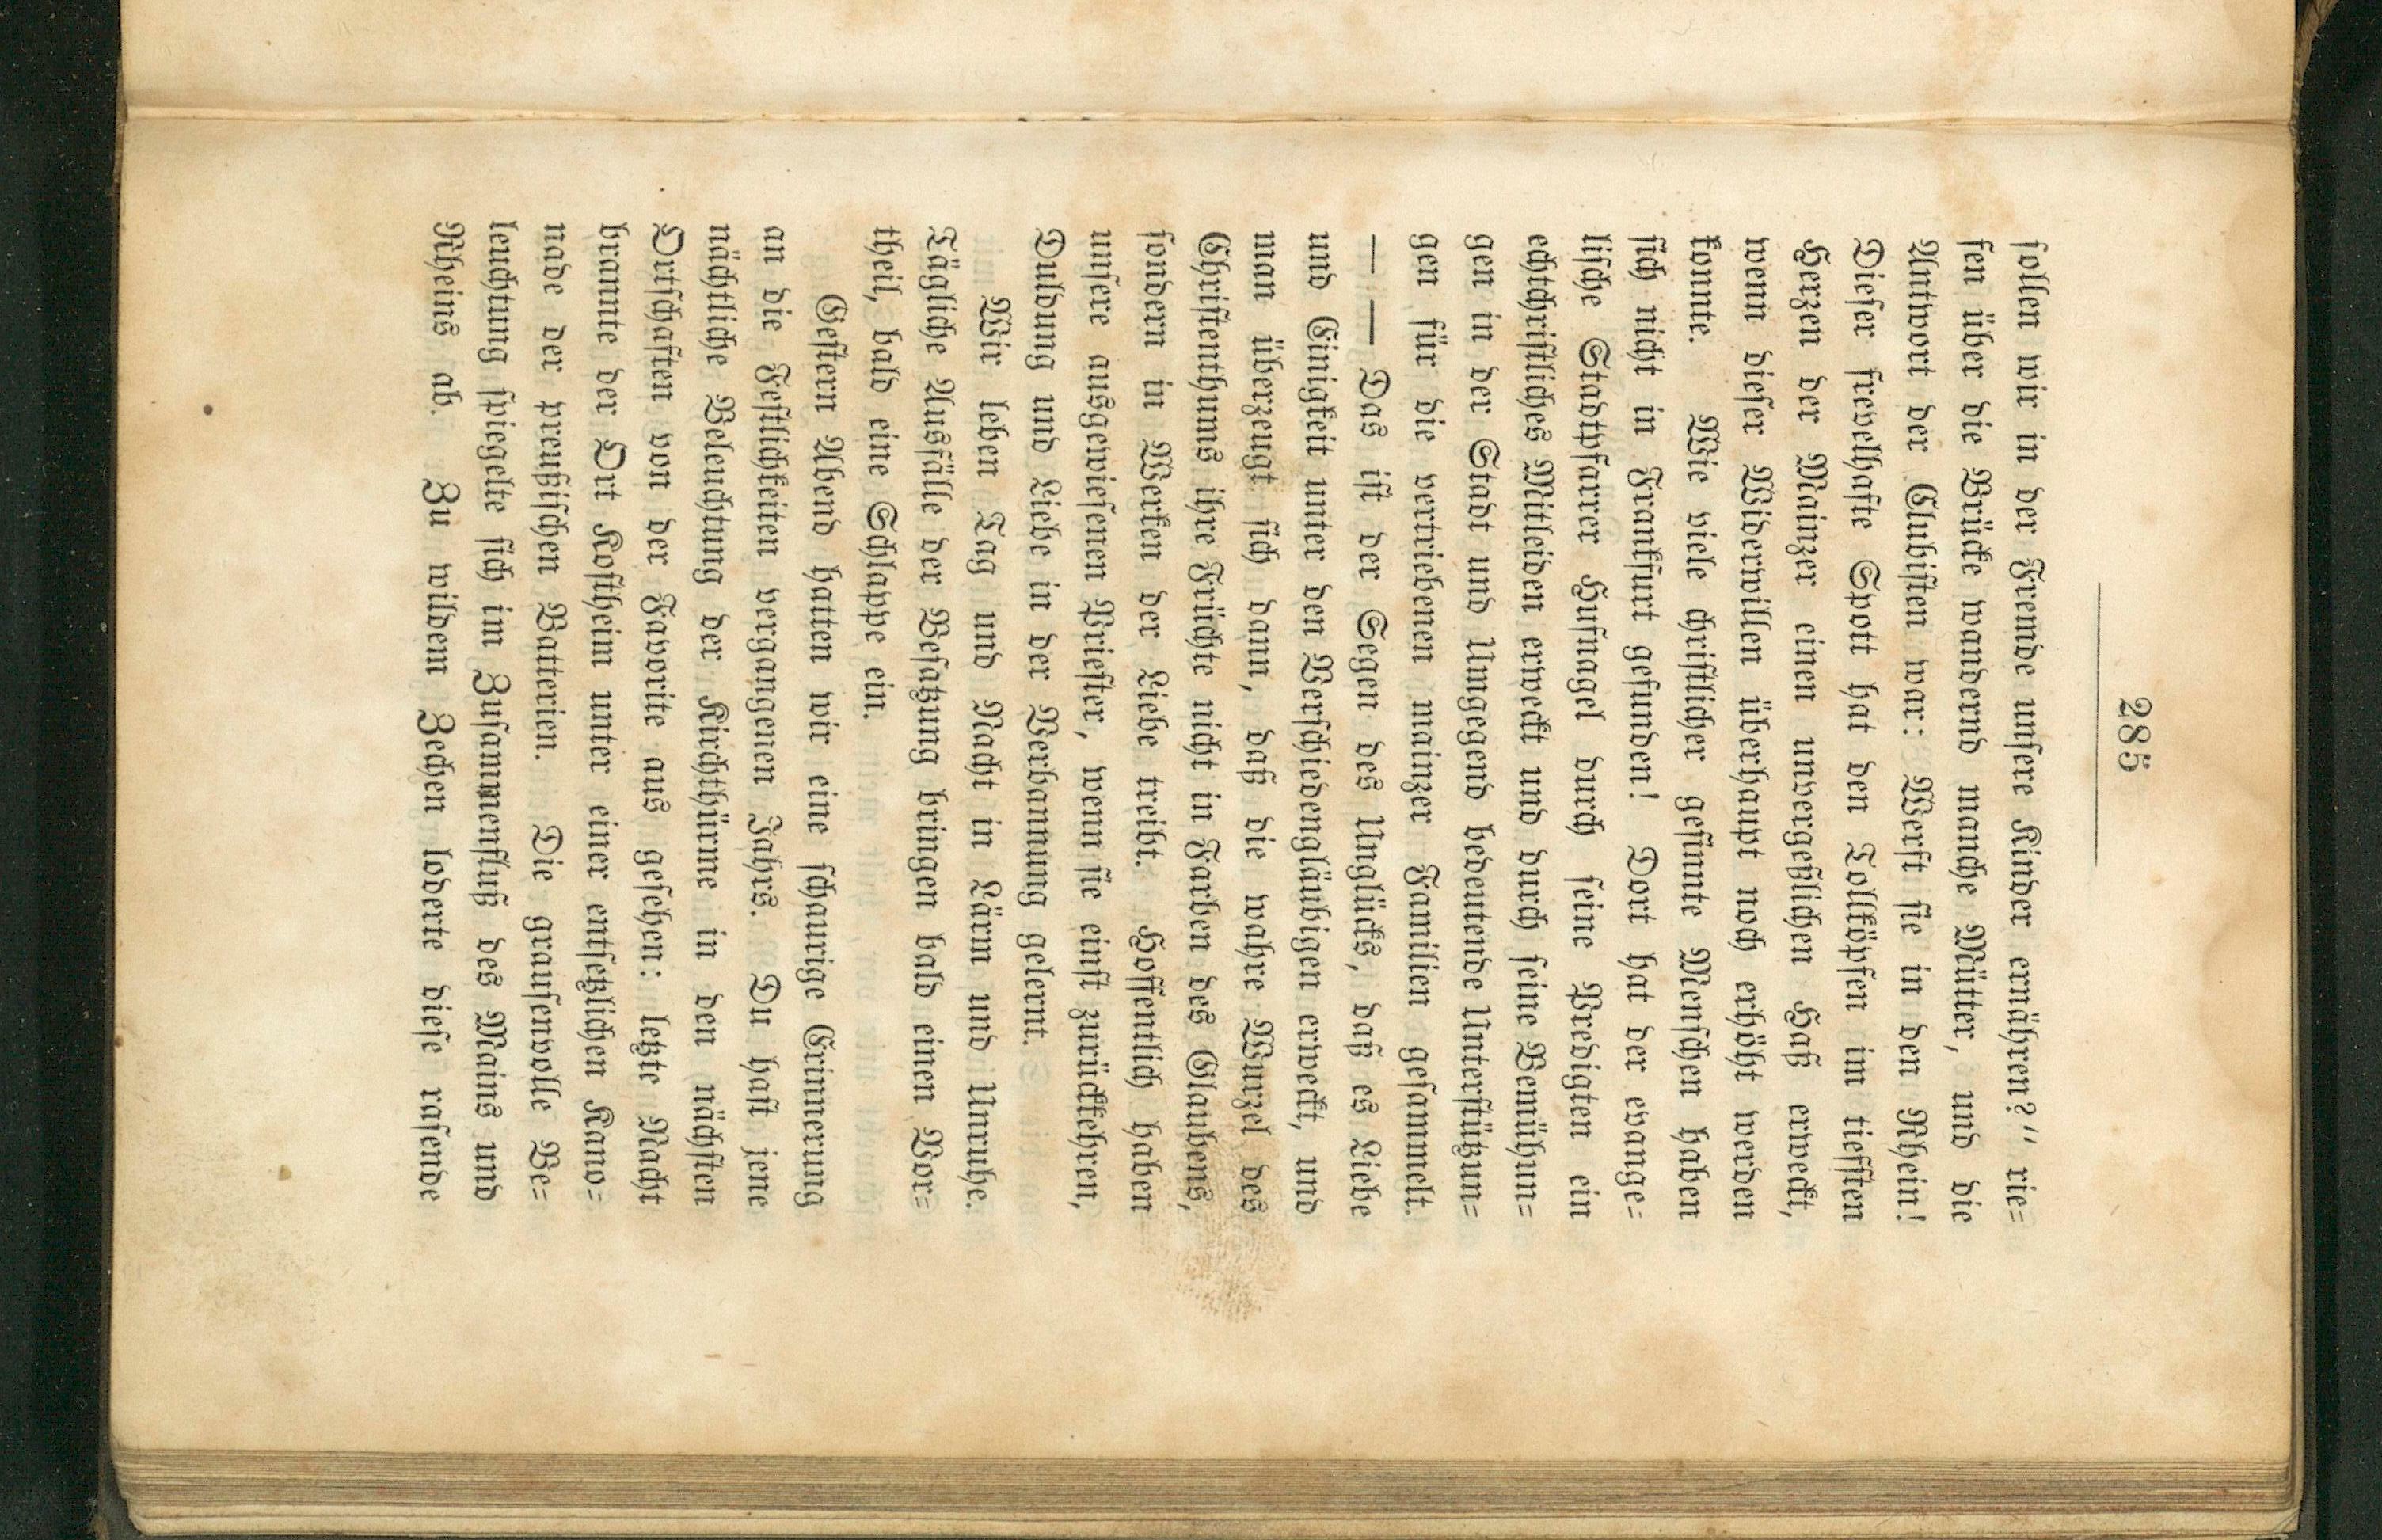 285
sollen wir in der Fremde unsere Kinder ernähren?" rie=
fen über die Brücke wandernd manche Mütter, und die
Antwort der Clubisten war: Werft sie in den Rhein!
Dieser frevelhafte Spott hat den Tollköpfen im tiefsten
Herzen der Mainzer einen unvergeßlichen Haß erweckt,
wenn dieser Widerwillen überhaupt noch erhöht werden
konnte. Wie viele christlicher gesinnte Menschen haben
sich nicht in Frankfurt gefunden! Dort hat der evange=
lische Stadtpfarrer Hufnagel durch seine Predigten ein
echtchristliches Mitleiden erweckt und durch seine Bemühun=
gen in der Stadt und Umgegend bedeutende Unterstützun=
gen für die vertriebenen mainzer Familien gesammelt.
— — Das ist der Segen des Unglücks, daß es Liebe
und Einigkeit unter den Verschiedengläubigen erweckt, und
man überzeugt sich dann, daß die wahre Wurzel des
Christenthums ihre Früchte nicht in Farben des Glaubens,
sondern in Werken der Liebe treibt. Hoffentlich haben
unsere ausgewiesenen Priester, wenn sie einst zurückkehren,
Duldung und Liebe in der Verbannung gelernt.
Wir leben Tag und Nacht in Lärm und Unruhe.
Tägliche Ausfälle der Besatzung bringen bald einen Vor=
theil, bald eine Schlappe ein.
Gestern Abend hatten wir eine schaurige Erinnerung
an die Festlichkeiten vergangenen Jahrs. Du hast jene
nächtliche Beleuchtung der Kirchthürme in den nächsten
Ortschaften von der Favorite aus gesehen: letzte Nacht
brannte der Ort Kostheim unter einer entsetzlichen Kano=
nade der preußischen Batterien. Die grausenvolle Be=
leuchtung spiegelte sich im Zusammenfluß des Mains und
Rheins ab. Zu wildem Zechen loderte diese rasende